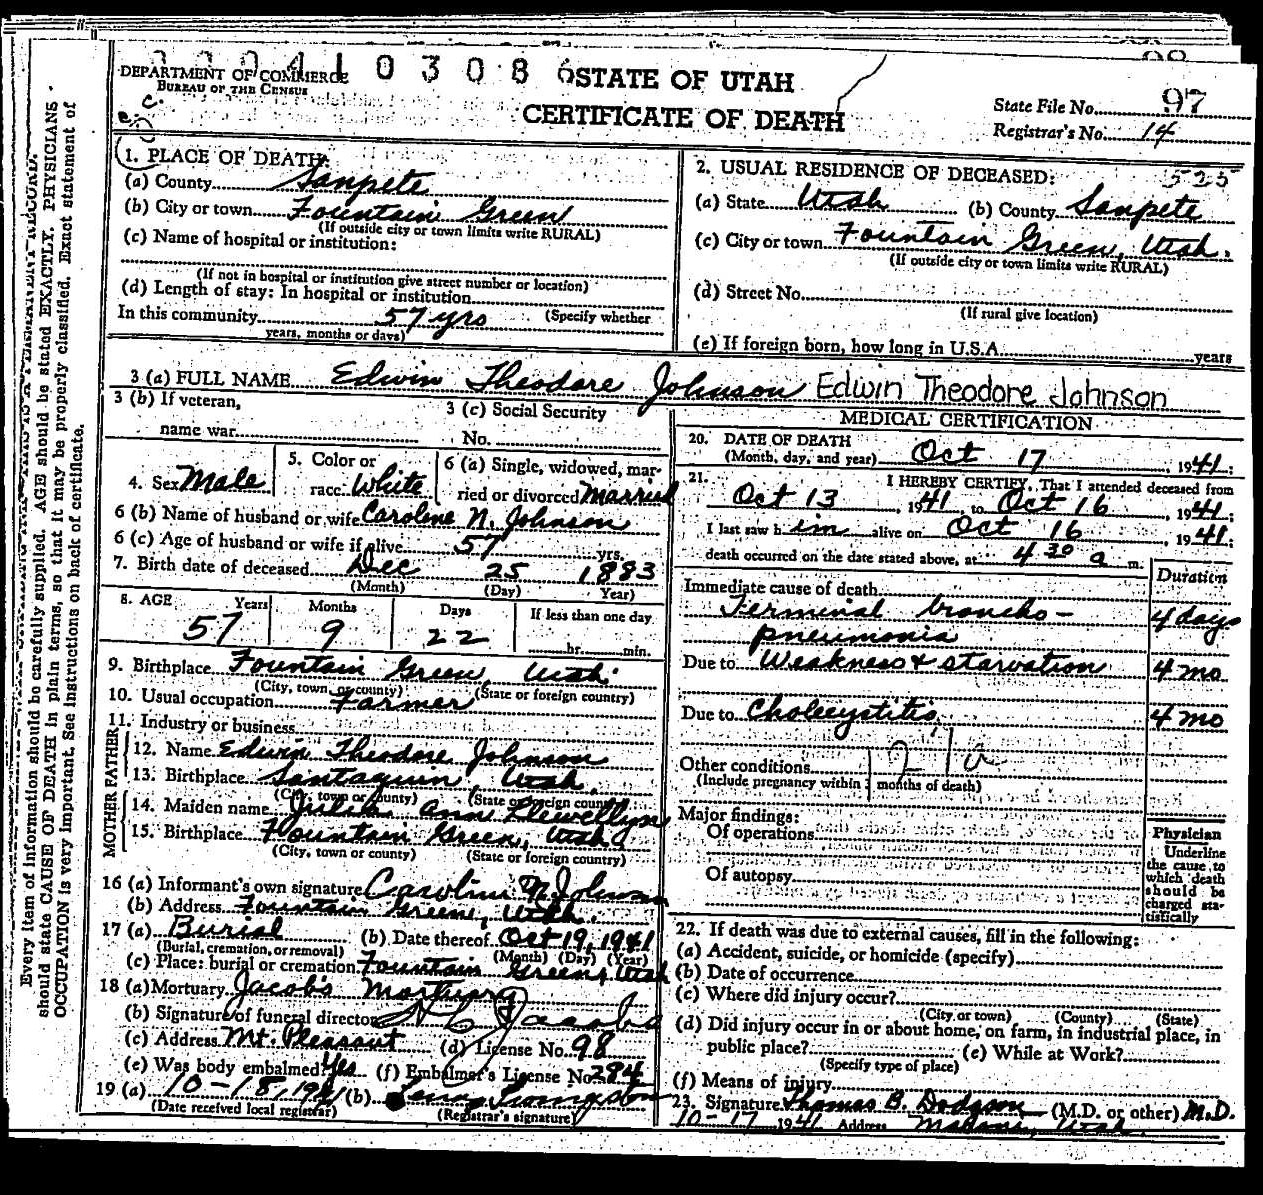 0 3 0 8 6
98
DEPARTMENT OF COMMERCE
BUREAU OF THE CENSUS
STATE OF UTAH
CERTIFICATE OF DEATH
State File No. 97
Registrar's No. 14
1. PLACE OF DEATH:
(a) County Sanpete
(b) City or town Fountain Green
(If outside city or town limits write RURAL)
(c) Name of hospital or institution:
(If not in hospital or institution give street number or location)
(d) Length of stay: In hospital or institution
In this community 57 yrs (Specify whether
years, months or days)
2. USUAL RESIDENCE OF DECEASED: 525
(a) State Utah (b) County Sanpete
(c) City or town Fountain Green, Utah.
(If outside city or town limits write RURAL)
(d) Street No.
(If rural give location)
(e) If foreign born, how long in U.S.A. years
3 (a) FULL NAME Edwin Theodore Johnson Edwin Theodore Johnson
3 (b) If veteran,
name war
3 (c) Social Security
No.
4. Sex Male
5. Color or
race White
6 (a) Single, widowed, mar-
ried or divorced Married
6 (b) Name of husband or wife Caroline N. Johnson
6 (c) Age of husband or wife if alive 57 yrs.
7. Birth date of deceased Dec 25 1883
(Month) (Day) Year)
8. AGE Years Months Days If less than one day
57 9 22 hr. min.
9. Birthplace Fountain Green, Utah.
(City, town or county) (State or foreign country)
10. Usual occupation Farmer
11. Industry or business
FATHER
12. Name Edwin Theodore Johnson
13. Birthplace Santaquin Utah.
(City, town or county) (State or foreign country)
MOTHER
14. Maiden name Julia Ann Llewellyn
15. Birthplace Fountain Green, Utah
(City, town or county) (State or foreign country)
16 (a) Informant's own signature Caroline N. Johnson
(b) Address Fountain Greene, Utah.
17 (a) Burial (b) Date thereof Oct 19, 1941
(Burial, cremation, or removal) (Month) (Day) (Year)
(c) Place: burial or cremation Fountain Green, Utah
18 (a) Mortuary Jacobs Mortuary
(b) Signature of funeral director Jacobs
(c) Address Mt. Pleasant (d) License No. 98
(e) Was body embalmed? Yes (f) Embalmer's License No. 284
19 (a) 10-18, 1941 (b)
(Date received local registrar) (Registrar's signature)
MEDICAL CERTIFICATION
20. DATE OF DEATH
(Month, day, and year) Oct 17, 1941;
21. I HEREBY CERTIFY, That I attended deceased from
Oct 13, 1941, to Oct 16, 1941;
I last saw him alive on Oct 16, 1941;
death occurred on the date stated above, at 4 30 a m.
Duration
Immediate cause of death
Terminal broncho- 4 days
pneumonia
Due to Weakness & starvation 4 mo
Due to Cholecystitis 4 mo
Other conditions
(Include pregnancy within 3 months of death)
Major findings:
Of operations
Of autopsy
Physician
Underline
the cause to
which death
should be
charged sta-
tistically
22. If death was due to external causes, fill in the following:
(a) Accident, suicide, or homicide (specify)
(b) Date of occurrence
(c) Where did injury occur?
(City or town) (County) (State)
(d) Did injury occur in or about home, on farm, in industrial place, in
public place? (e) While at Work?
(Specify type of place)
(f) Means of injury
23. Signature Thomas B. Dodgson (M.D. or other) M.D.
10 17 1941 Address Utah.
Every item of information should be carefully supplied. AGE should be stated EXACTLY. PHYSICIANS
should state CAUSE OF DEATH in plain terms, so that it may be properly classified. Exact statement of
OCCUPATION is very important. See instructions on back of certificate.